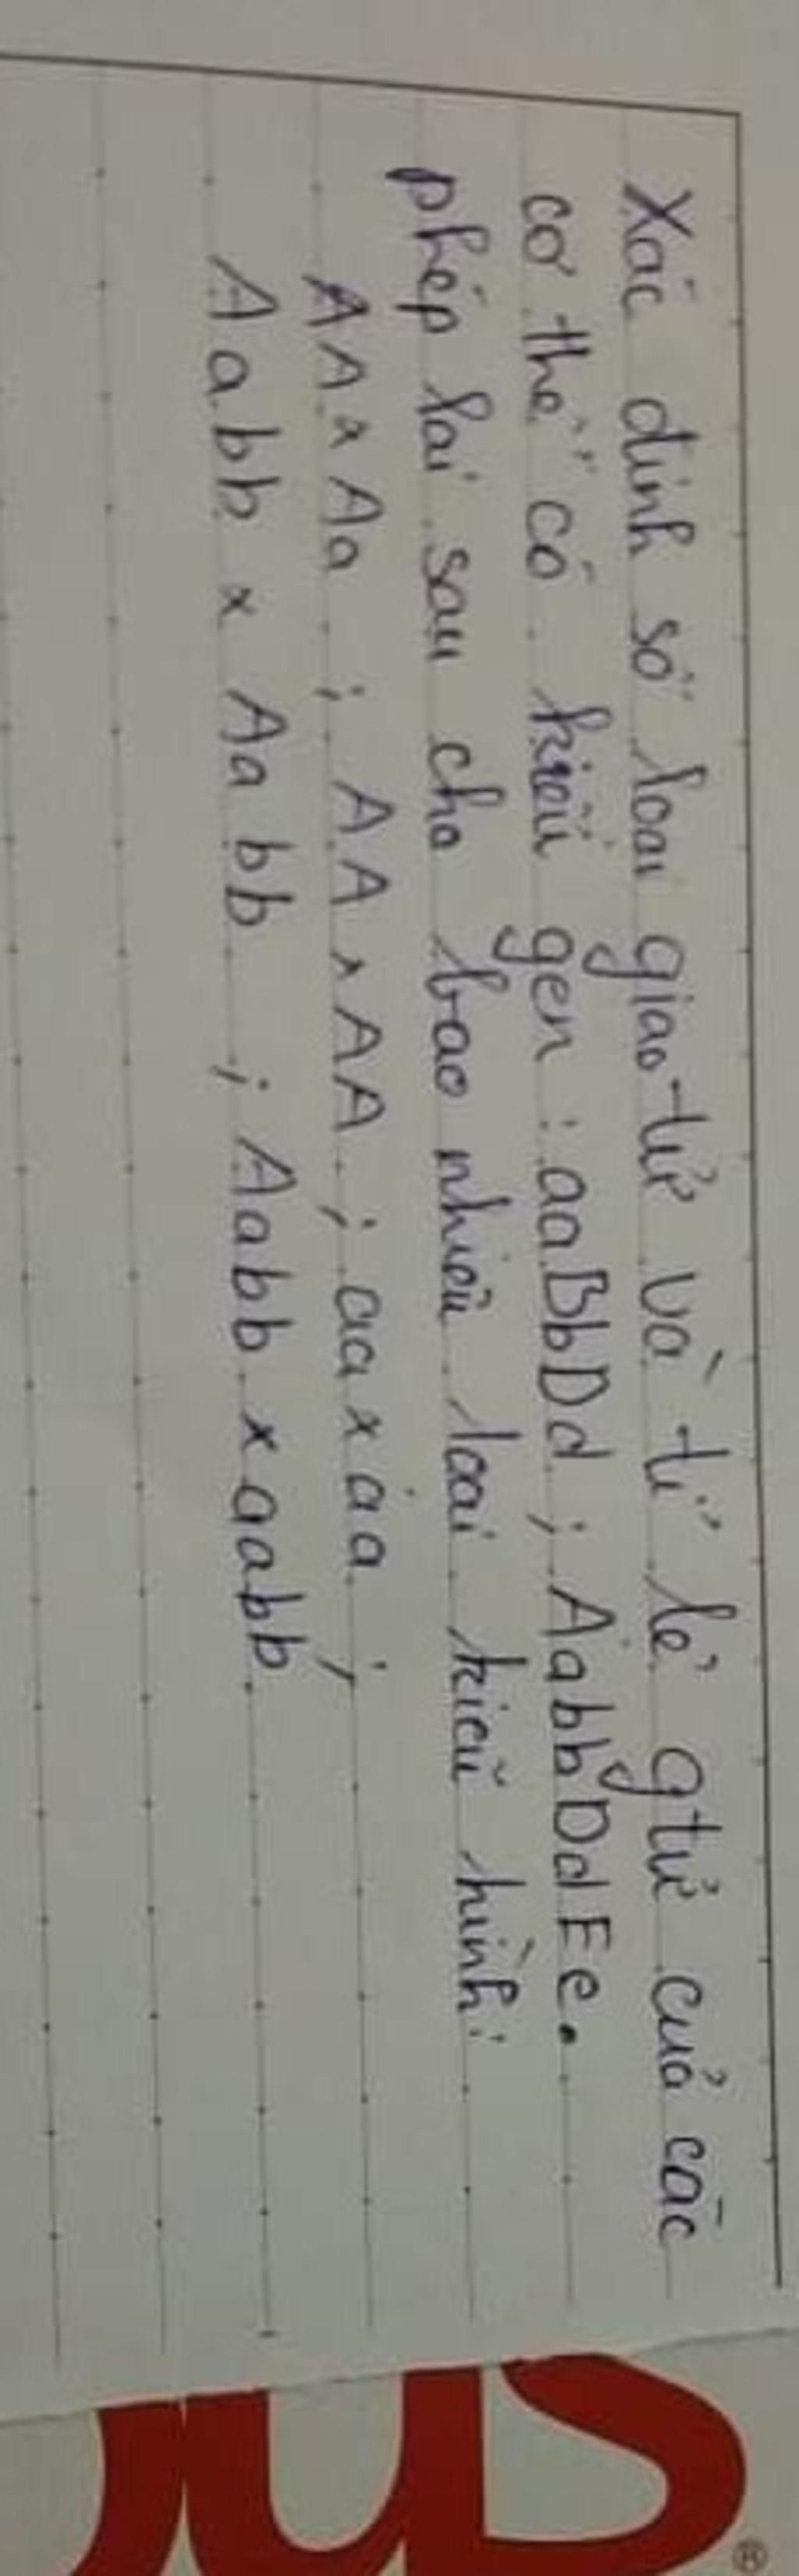 Xác định số loại giao tử và tỉ lệ gtử của các
cơ thể có kiểu gen : aaBbDd ; AabbDdEe.
phép lai sau cho bao nhiêu loại kiểu hình:
AA x Aa ; AA x AA ; aa x aa ;
Aabb x Aabb ; Aabb x aabb
®